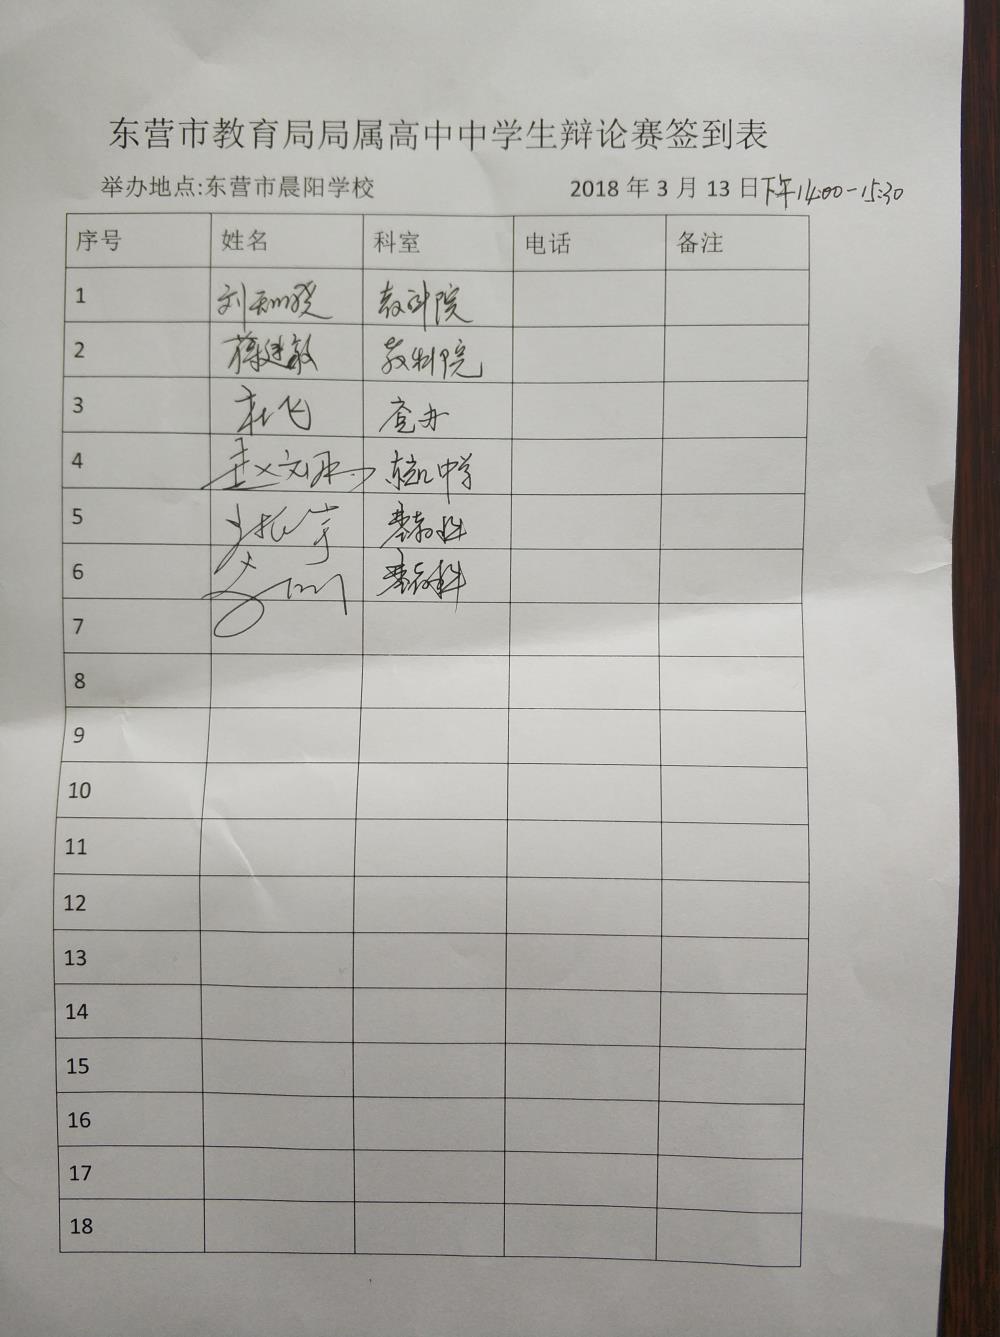 东营市教育局局属高中中学生辩论赛签到表
举办地点:东营市晨阳学校 2018 年 3 月 13 日下午14:00-15:30
序号 姓名 科室 电话 备注
1 刘 教科院
2 薛建敏 教科院
3 杜飞
4 赵文 中学
5 张宇 基教科
6 基教科
7
8
9
10
11
12
13
14
15
16
17
18